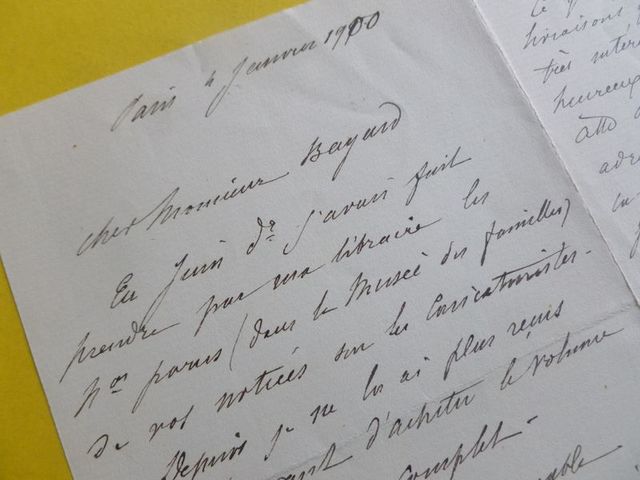 Paris 4 Janvier 1900
Cher Monsieur Bayard
En Juin dr j'avais fait
prendre par ma libraire les
nos parus (dans le Musée des familles)
de vos notices sur les Caricaturistes.
Depuis je ne les ai plus reçus
d'acheter le volume
complet.
livraisons
très intér
heureux
adre